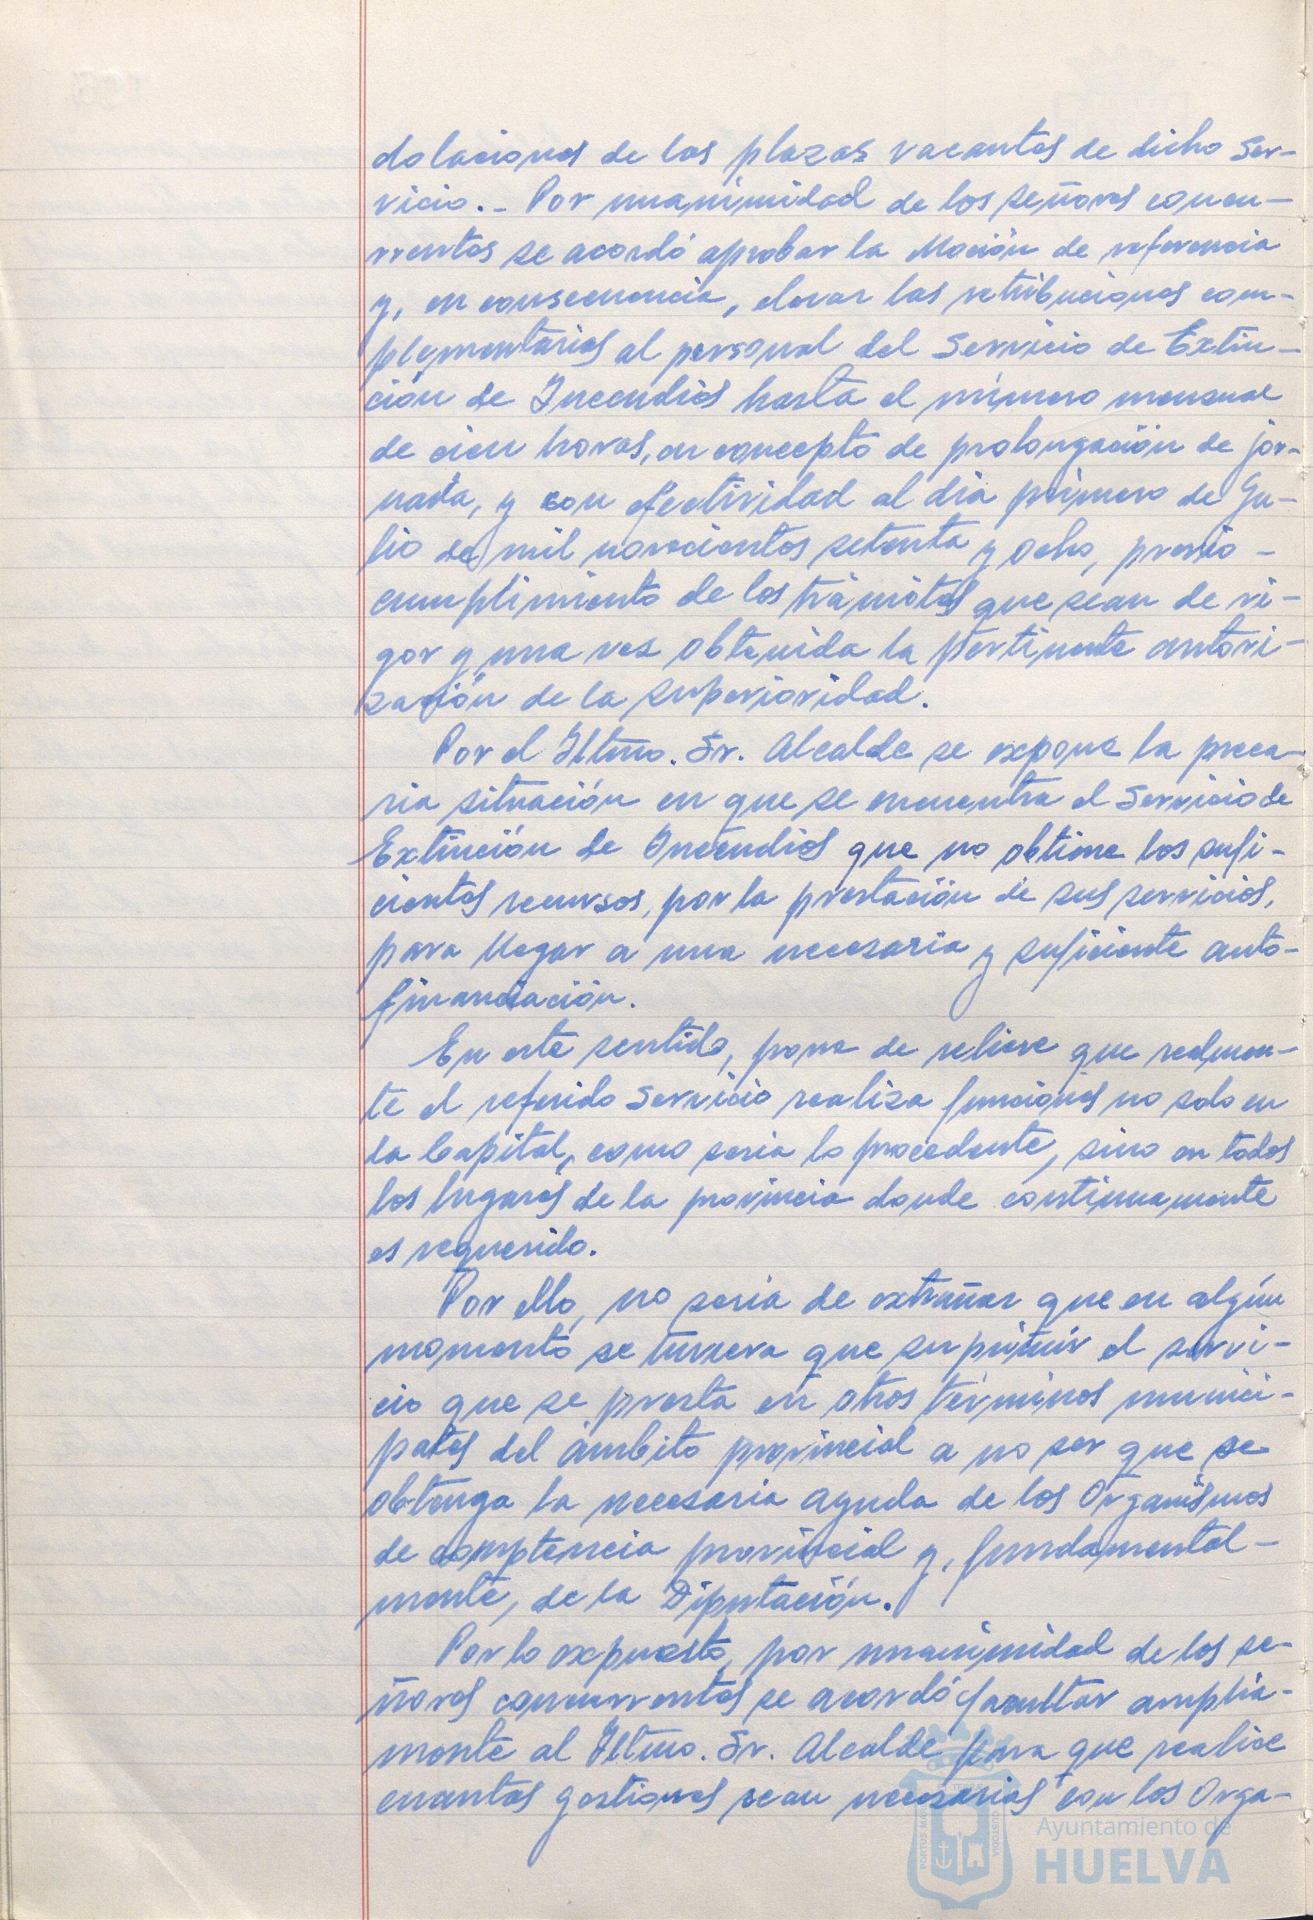 dotaciones de las plazas vacantes de dicho Ser-
vicio.- Por unanimidad de los señores concu-
rrentes se acordó aprobar la Moción de referencia
y, en consecuencia, elevar las retribuciones com-
plementarias al personal del Servicio de Extin-
ción de Incendios hasta el número mensual
de cien horas, en concepto de prolongación de jor-
nada, y con efectividad al dia primero de Ju-
lio de mil novecientos setenta y ocho, previo -
cumplimiento de los trámites que sean de ri-
gor y una vez obtenida la pertinente autori-
zación de la superioridad.
Por el Iltmo. Sr. Alcalde se expone la preca-
ria situación en que se encuentra el Servicio de
Extinción de Incendios que no obtiene los sufi-
cientes recursos, por la prestación de sus servicios,
para llegar a una necesaria y suficiente auto-
financiación.
En este sentido, pone de relieve que realmen-
te el referido Servicio realiza funciones no solo en
la Capital, como seria lo procedente, sino en todos
los lugares de la provincia donde continuamente
es requerido.
Por ello, no seria de extrañar que en algún
momento se tuviera que suprimir el servi-
cio que se presta en otros términos munici-
pales del ámbito provincial a no ser que se
obtenga la necesaria ayuda de los Organismos
de comptencia provincial y, fundamental-
mente, de la Diputación.
Por lo expuesto, por unanimidad de los se-
ñores concurrentes se acordó facultar amplia-
mente al Iltmo. Sr. Alcalde para que realice
cuantas gestiones sean necesarias con los Orga-
Ayuntamiento de
HUELVA